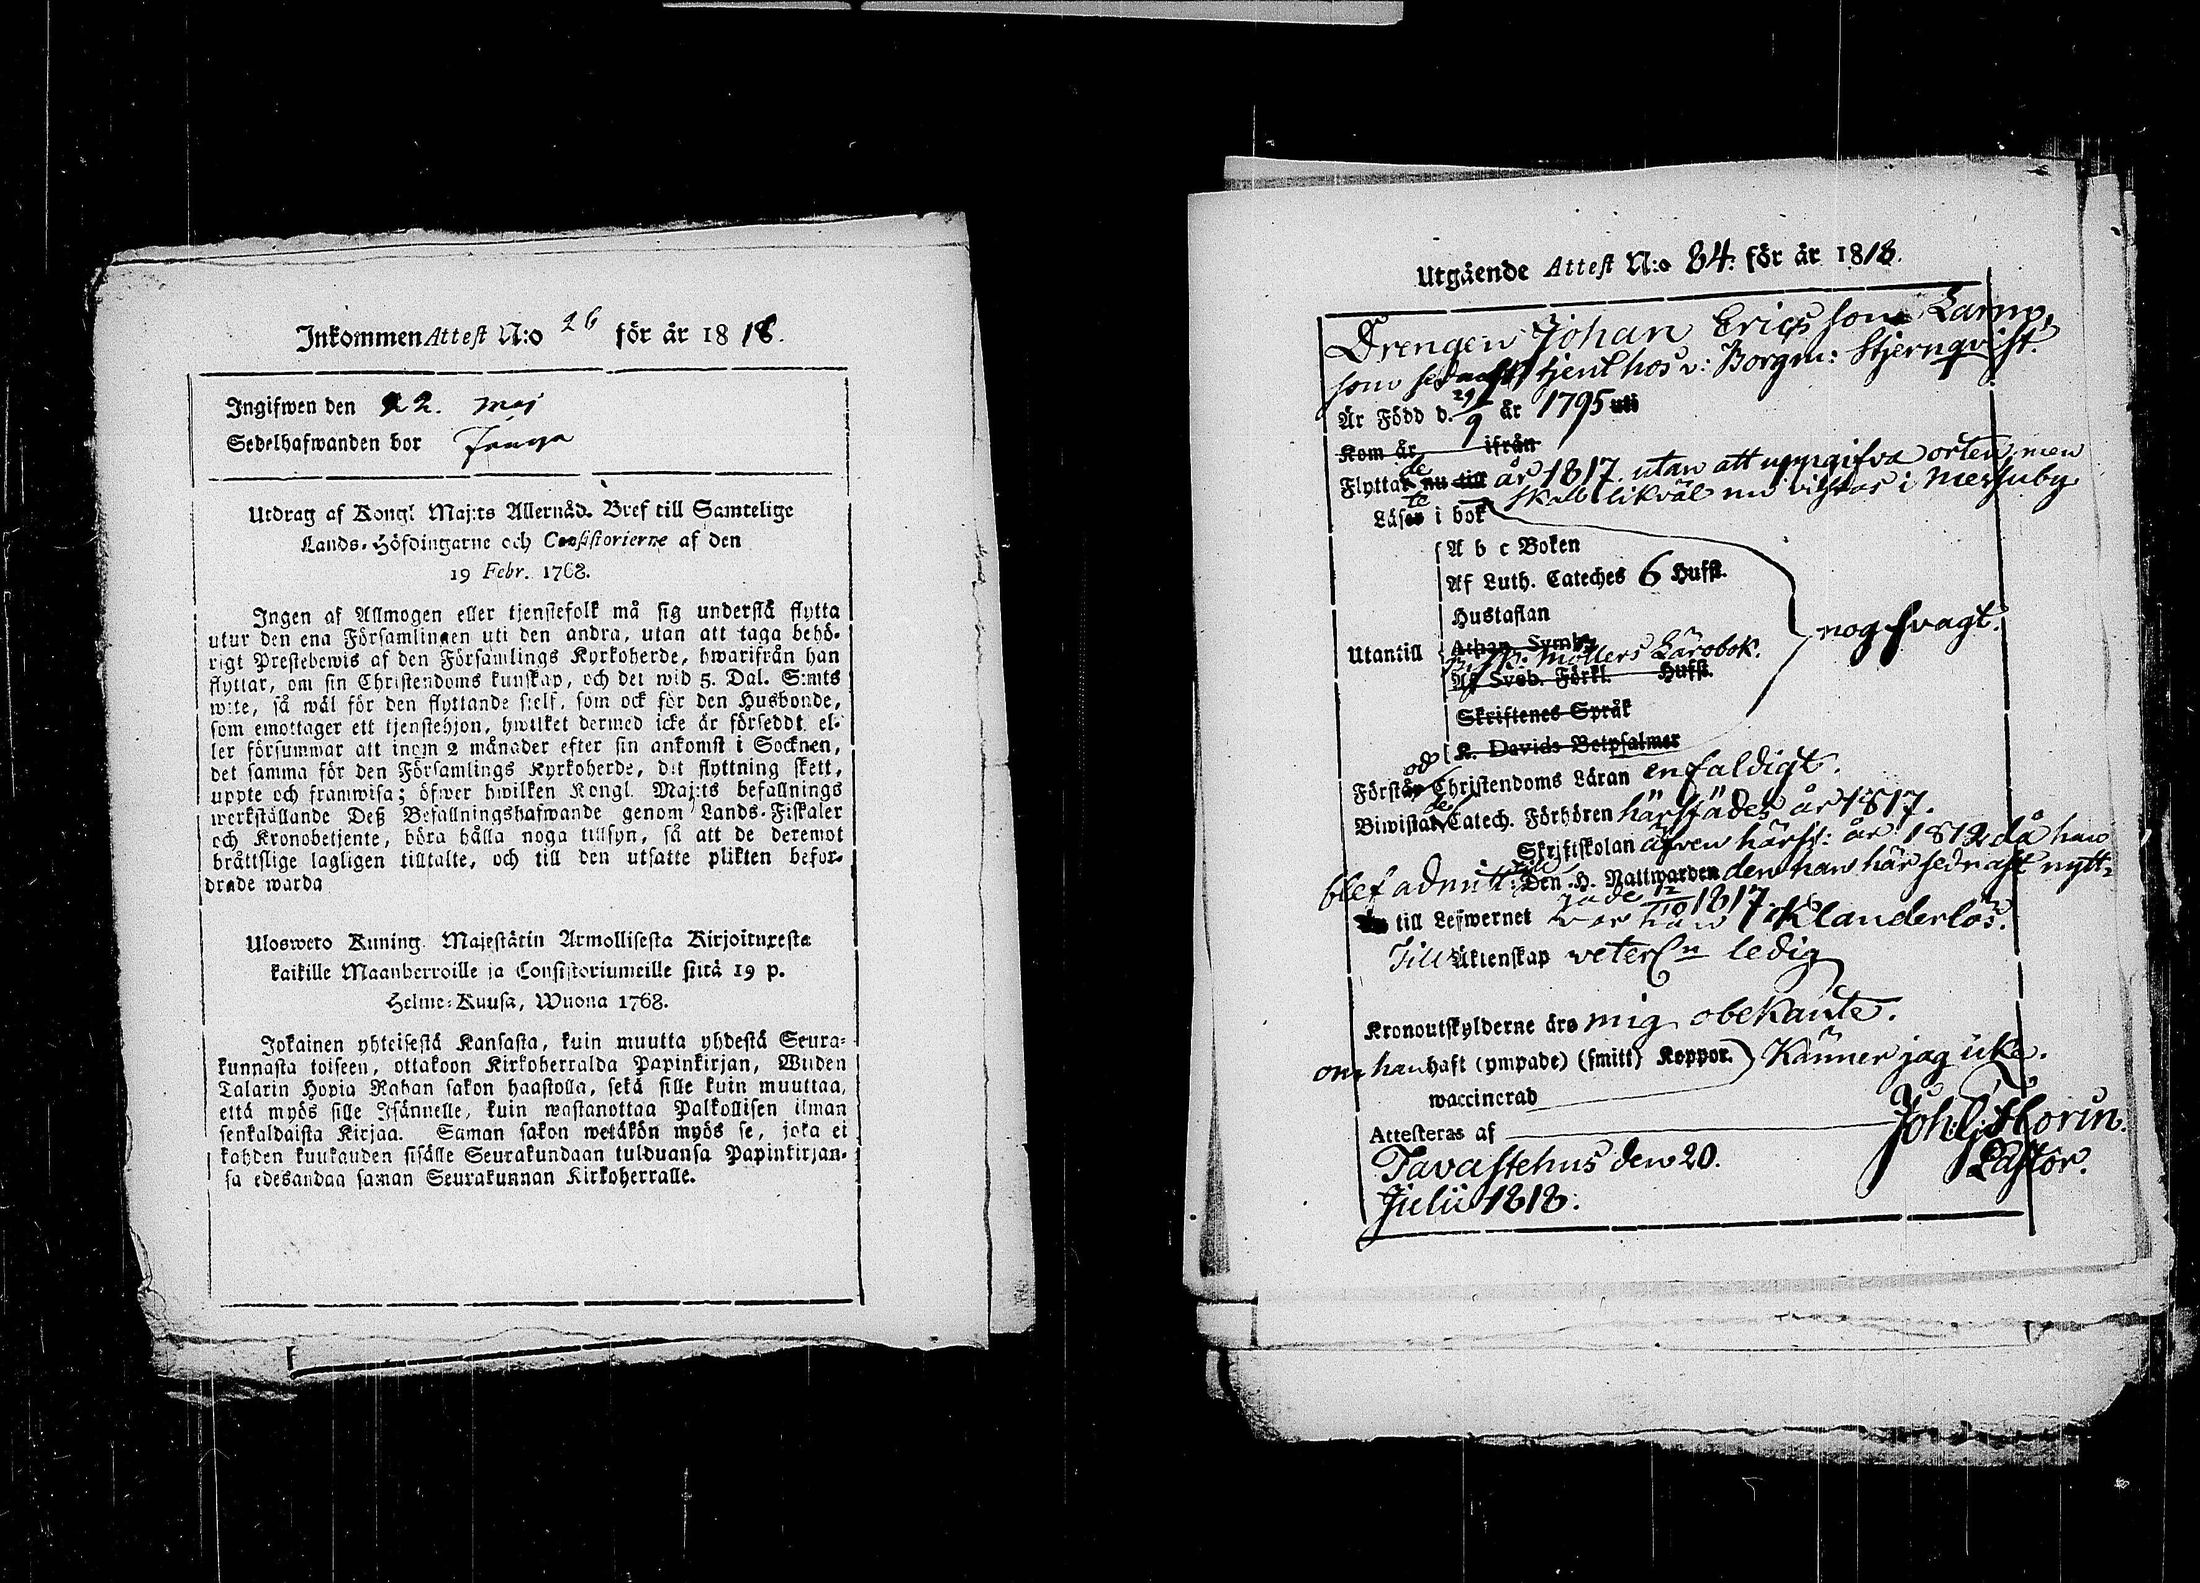 Inkommen Attest N:o 26 för år 1818.
Ingifwen den 22. Maj
Sedelhafwanden bor
Utdrag af Kongl Maj:ts Allernåd. Bref till Samtelige
Lands-Höfdingarne och Consistorierne af den
19 Febr. 1768.
Ingen af Allmogen eller tjenstefolk må sig understå flytta
utur den ena Församlingen uti den andra, utan att taga behö-
rigt Prestebewis af den Församlings Kyrkoherde, hwarifrån han
flyttar, om sin Christendoms kunskap, och det wid 5. Dal. S:mts
wite, så wäl för den flyttande sielf, som ock för den Husbonde,
som emottager ett tjenstehjon, hwilket dermed icke är försedt, el-
ler försummar att inom 2 månader efter sin ankomst i Socknen,
det samma för den Församlings Kyrkoherde, dit flyttning skett,
uppte och framwisa; öfwer hwilken Kongl. Maj:ts befallnings
werkställande Deß Befallningshafwande genom Lands-Fiskaler
och Kronobetjente, böra hålla noga tillsyn, så att de deremot
bråttslige lagligen tilltalte, och till den utsatte plikten befor-
drade warda
Ulosweto Kuning. Majestätin Armollisesta Kirjoituxesta
kaikille Maanherroille ja Consistoriumeille siitä 19 p.
Helme-Kuusa, Wuona 1768.
Jokainen yhteisestä Kansasta, kuin muutta yhdestä Seura-
kunnasta toiseen, ottakoon Kirkoherralda Papinkirjan, Wiiden
Talarin Hopia Rahan sakon haastolla, sekä sille kuin muuttaa,
että myös sille Isännelle, kuin wastanottaa Palkollisen ilman
senkaldaista Kirjaa. Saman sakon wetäkön myös se, joka ei
kahden kuukauden sisälle Seurakundaan tulduansa Papinkirjan-
sa edesandaa saman Seurakunnan Kirkoherralle.
Utgående Attest N:o 84: för år 1818.
Drengen Johan Ericsson Larmo,
som sednast tjent hos v: Borgm: Stjernqvist.
Är Född d. 29/9 år 1795 uti
Kom år ifrån
Flyttade nu till år 1817. utan att uppgifva orten, men
skall likväl nu vistas i Messuby
Läste i bok
A b c Boken
Af Luth. Cateches 6 Hufst.
Hustaflan
Utantill Athan. Symb.
Möllers Lärobok.
Af Sveb. Förkl. Hufst.
nog svagt.
Skriftenes Språk
K. Davids Botpsalmer
Förstod Christendoms Läran enfaldigt.
Biwistade Catech. Förhören härstädes år 1817.
Skriftskolan äfven härst: år 1812 då han
blef admitt: till Den H. Nattwarden den han här sednast nytt-
jade 12/10 1817.
till Lefwernet var han oklanderlös.
Till Äktenskap veterl:n ledig
Kronoutskylderne äro mig obekante.
om han haft (ympade) (smitt) Koppor. Känner jag icke.
waccinerad
Attesteras af Joh: Gj: Florin.
Tavastehus den 20. Pastor.
Julii 1818.